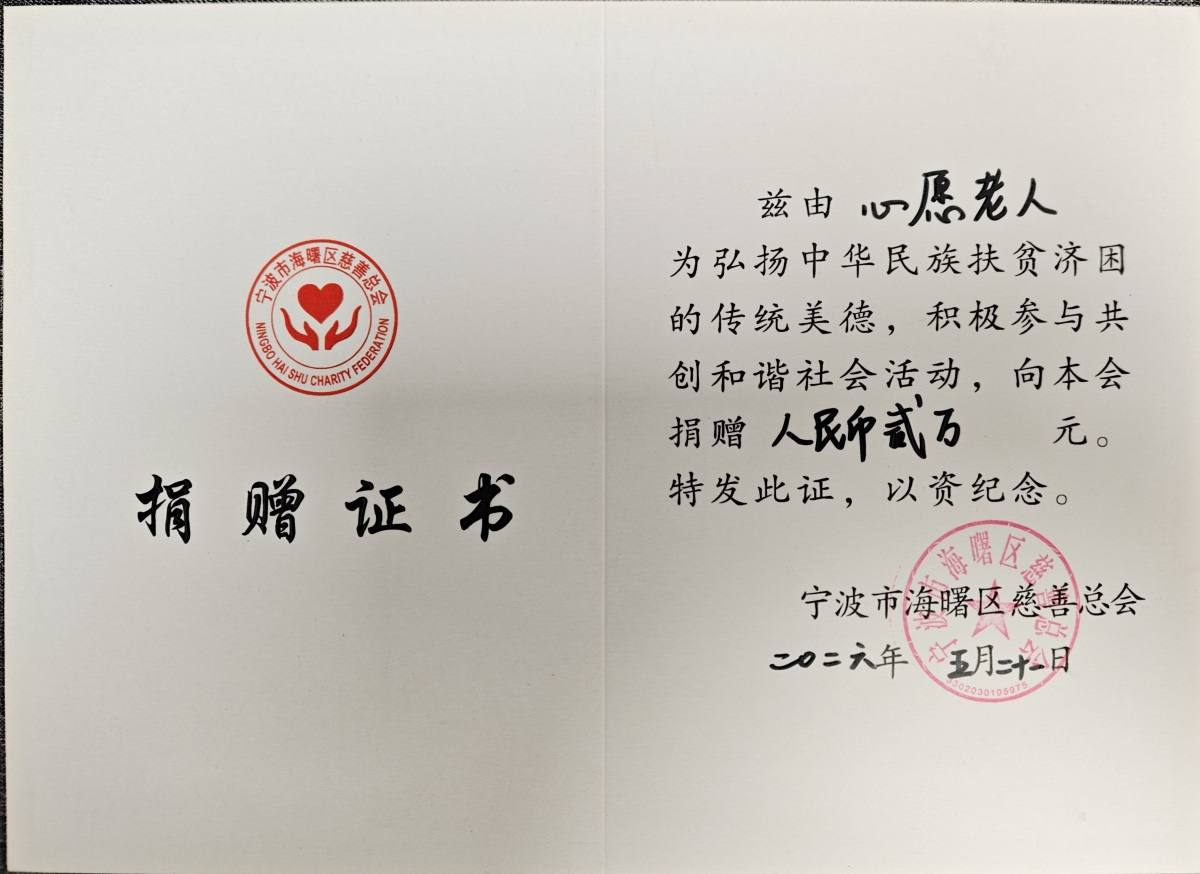 宁波市海曙区慈善总会
NINGBO HAI SHU CHARITY FEDERATION
捐赠证书
兹由 心愿老人
为弘扬中华民族扶贫济困
的传统美德，积极参与共
创和谐社会活动，向本会
捐赠 人民币贰万 元。
特发此证，以资纪念。
宁波市海曙区慈善总会
二〇二六年 五月二十一日
宁波市海曙区慈善总会
3302030105975